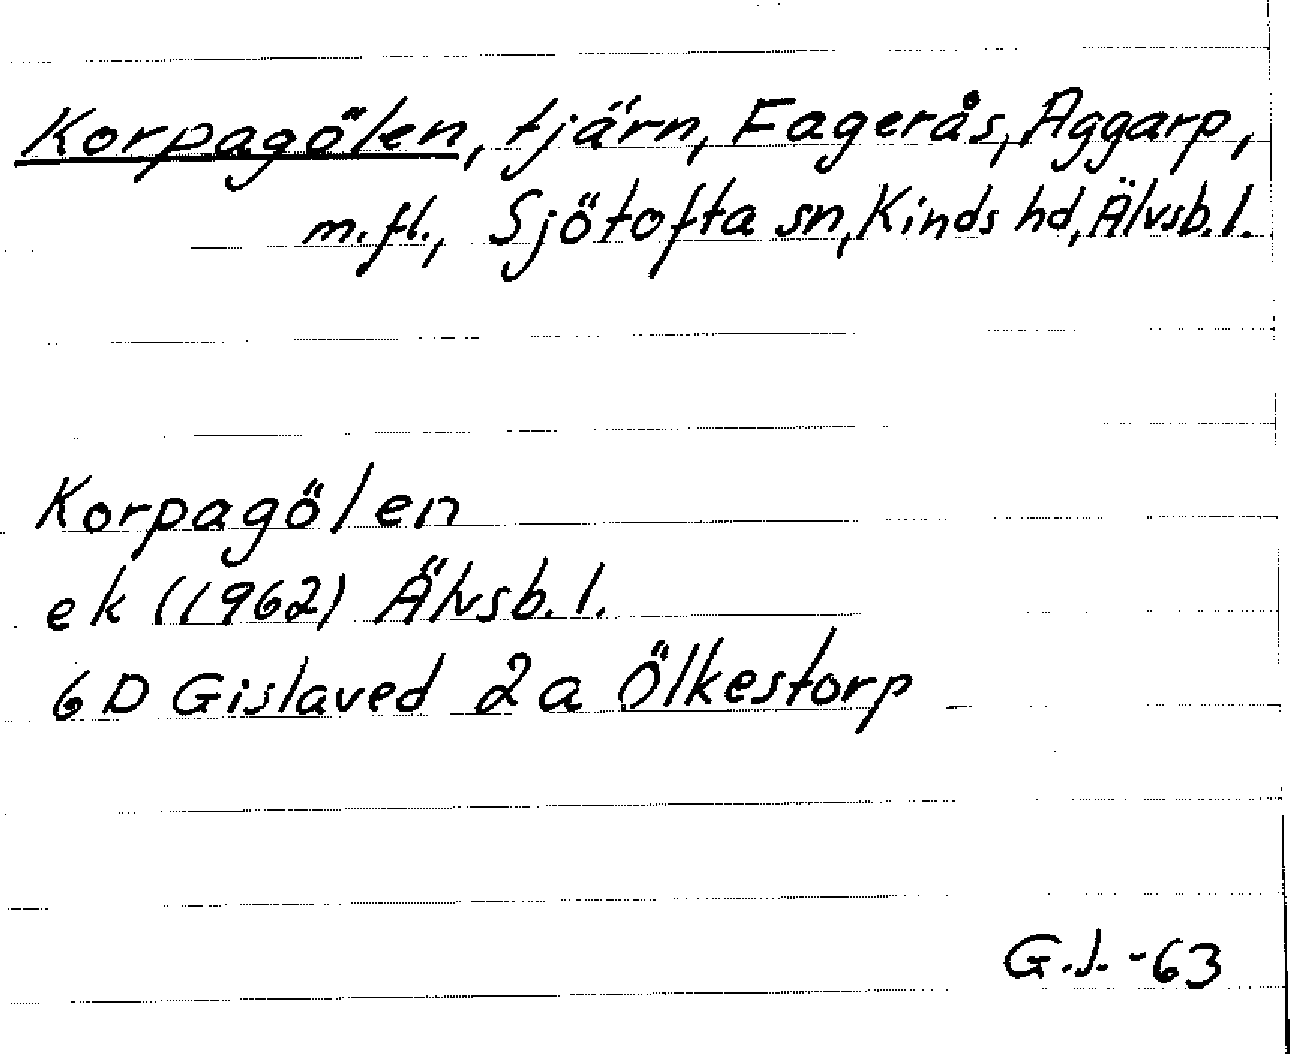 Korpagölen, tjärn, Fagerås, Aggarp,
m.fl., Sjötofta sn, Kinds hd, Älvsb. l.
Korpagölen
ek (1962) Älvsb. l.
6D Gislaved 2a Ölkestorp
G.J. -63